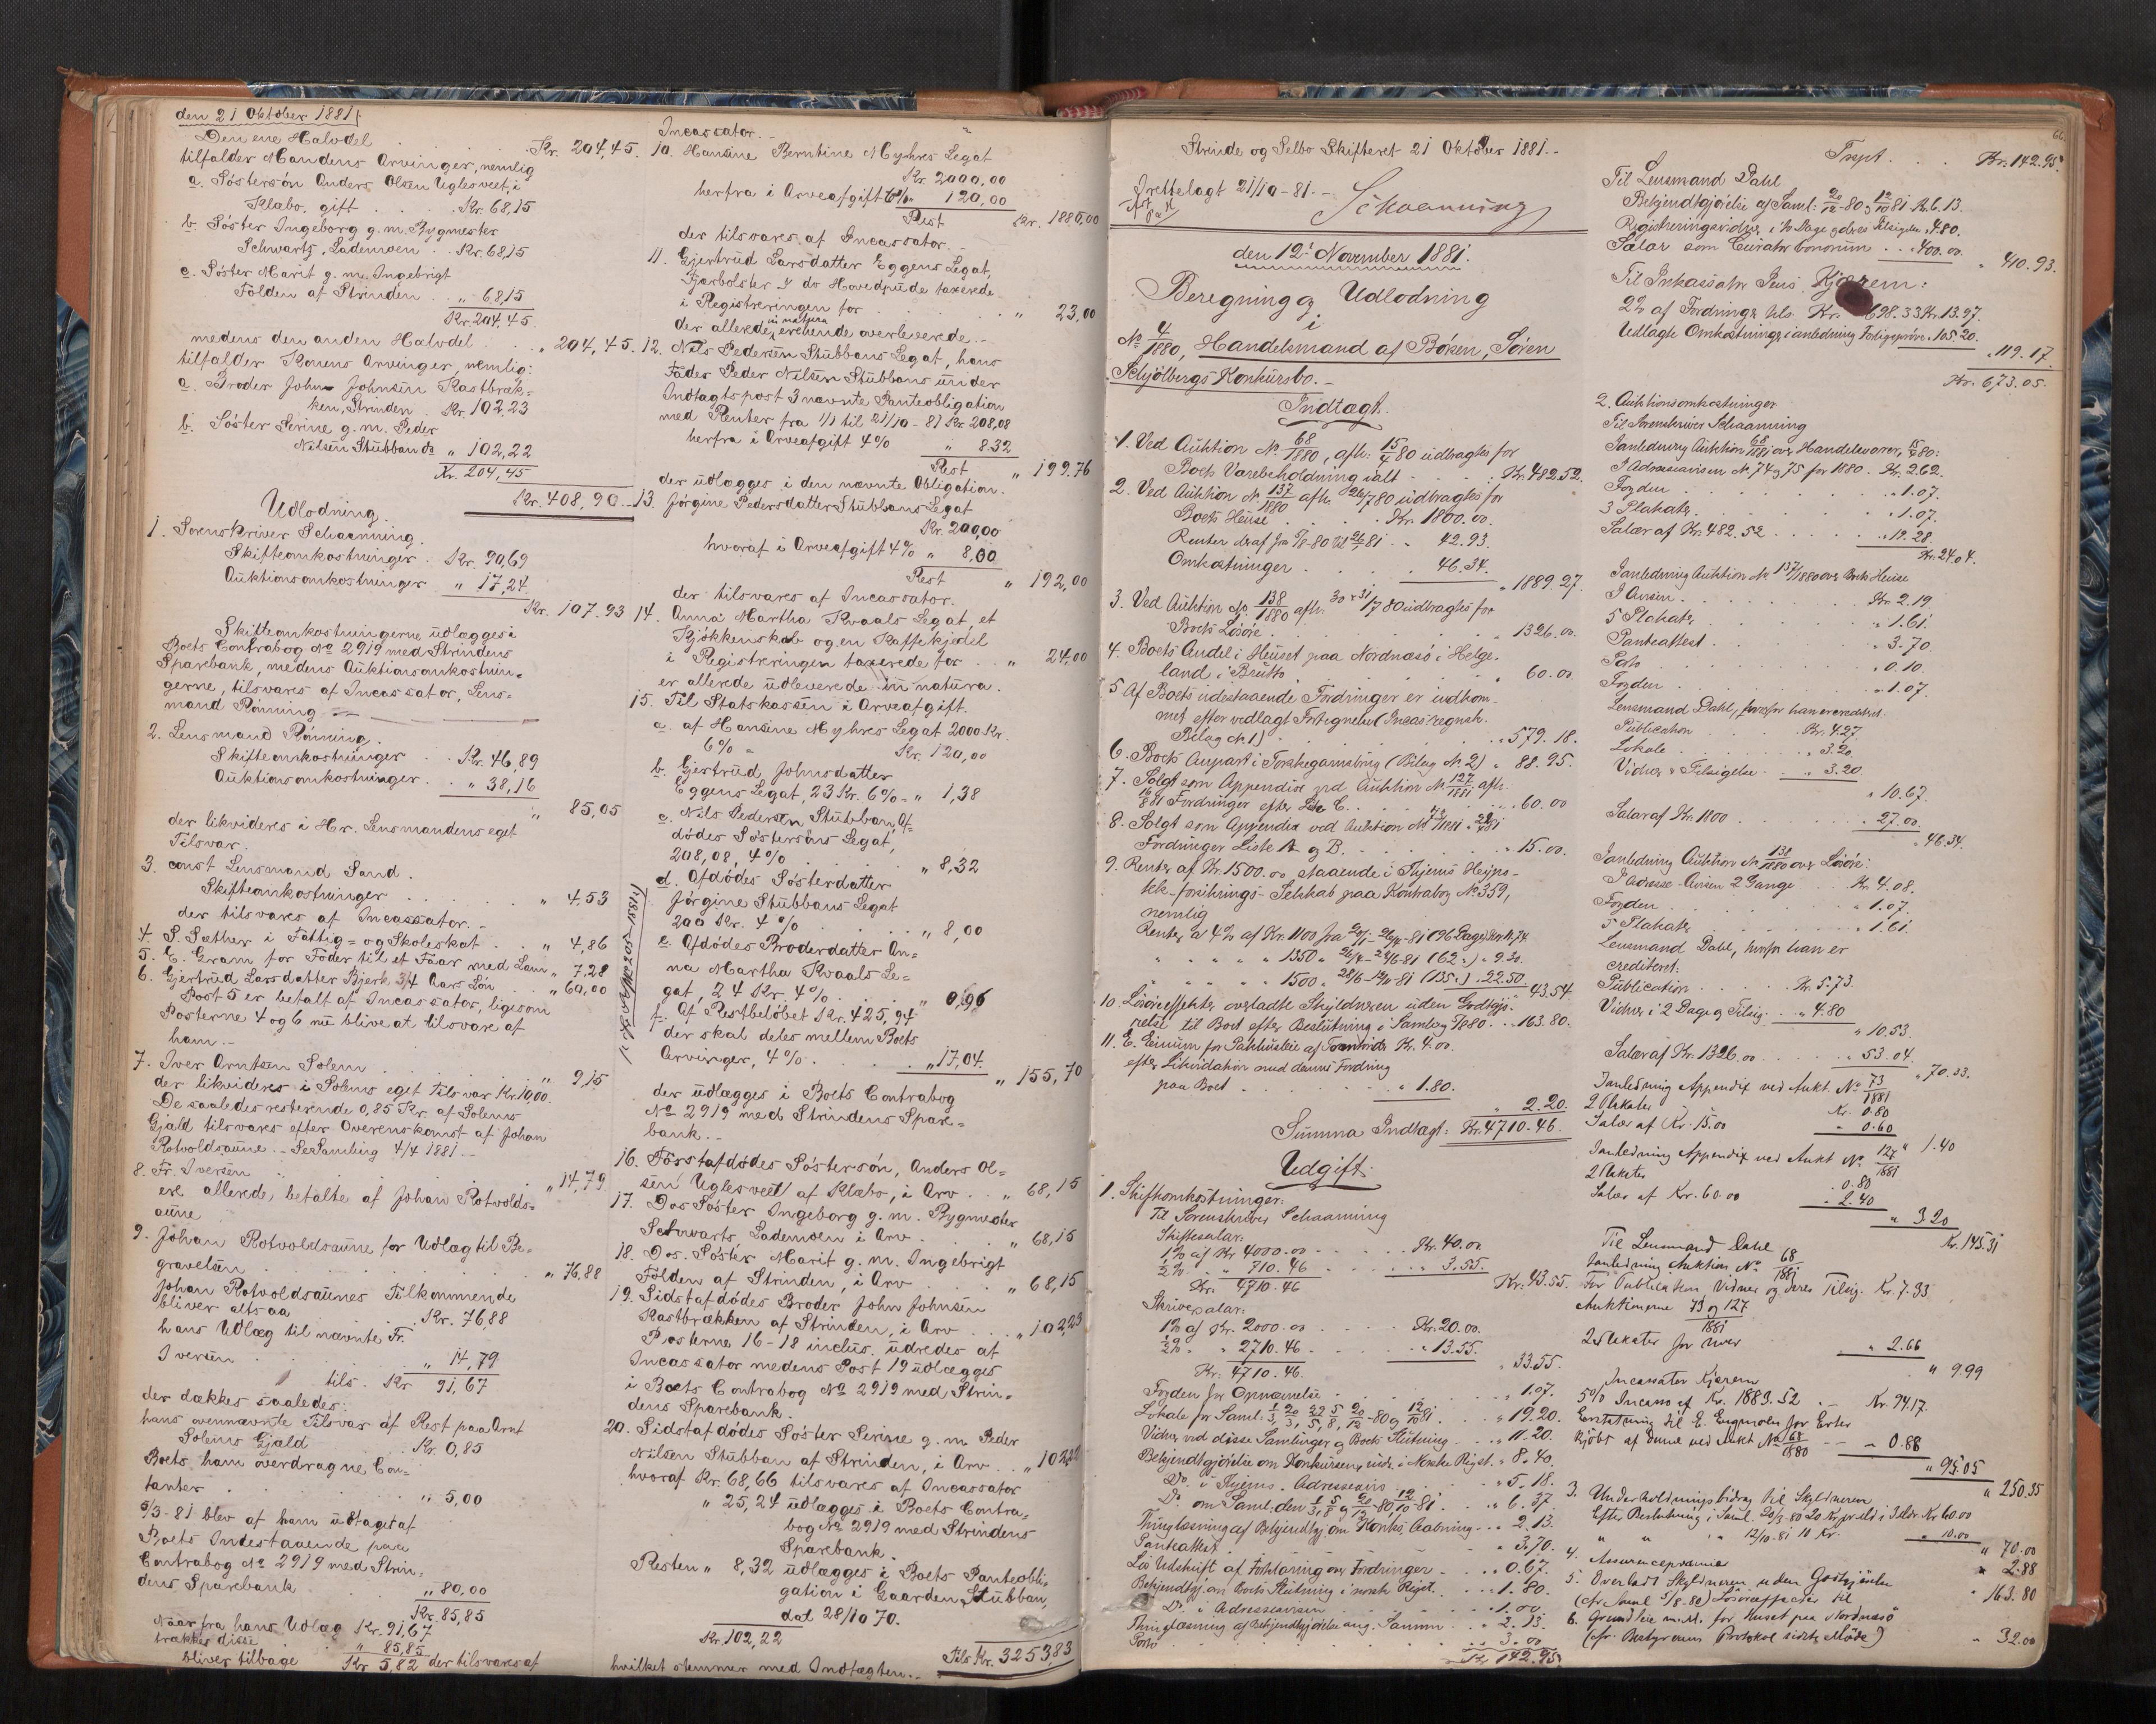 den 21 Oktober 1881.
Den ene Halvdel . . . Kr. 204,45.
tilfalder Mandens Arvinger, nemlig
a. Søstersøn Anders Olsen Uglesveet, i
Klæbo, gift . . . Kr. 68,15
b. Søster Ingeborg g. m. Bygmester
Schwartz, Lademoen . Kr. 68,15
c. Søster Marit g. m. Ingebrigt
Følden af Strinden . . „ 68,15
Kr. 204,45.
medens den anden Halvdel . . . „ 204,45.
tilfalder Konens Arvinger, nemlig:
a. Broder John Johnsen Rastbræk=
ken, Strinden . Kr. 102,23
b. Søster Serine g. m. Peder
Nilsen Stubban do „ 102,22
Kr. 204,45
Kr. 408,90
Udlodning.
1. Sorenskriver Schaanning.
Skifteomkostninger . Kr. 90,69
Auktionsomkostninger „ 17,24
Kr. 107.93
Skifteomkostningerne udlægges i
Boets Contrabog No 2919 med Strindens
Sparebank, medens Auktionsomkostnin=
gerne, tilsvares af Incassator, Lens=
mand Røning
2. Lensmand Røning.
Skifteomkostninger . . Kr. 46,89
Auktionsomkostninger . . „ 38,16
„ 85,05
der likvideres i Hr. Lensmandens eget
Tilsvar.
3. const Lensmand Sand.
Skifteomkostninger . . . „ 4,53
der tilsvares af Incassator.
4. S. Sæther i Fattig= og Skoleskat . . „ 4,86
5. E. Gram for Foder til et Faar med Lam „ 7,28
6. Gjertrud Larsdatter Bjerk 3/4 Aars Løn . . „ 60,00
Post 5 er betalt af Incassator, ligesom
Posterne 4 og 6 nu blive at tilsvare af
ham.
7. Iver Arntsen Solem . . . „ 9,15
der likvideres i Solems eget Tilsvar Kr. 10,00.
De saaledes resterende 0,85 Kr. af Solems
Gjæld tilsvares efter Overenskomst af Johan
Rotvoldsaune. - Se Samling 4/4 1881.
8. Fr. Iversen . . . „ 14,79
ere allerede betalte af Johan Rotvolds=
aune
9. Johan Rotvoldsaune for Udlæg til Be=
gravelsen . . . „ 76,88
Johan Rotvoldsaunes Tilkommende
bliver altsaa . . . Kr. 76,88
hans Udlæg til nævnte Fr.
Iversen . . . „ 14,79
tils. Kr 91,67
der dækkes saaledes:
hans ovennævnte Tilsvar af Rest paa Arnt
Solems Gjæld . . . Kr. 0,85
Boets ham overdragne Con=
tanter . . . „ 5,00
5/3-81 blev af ham udtaget af
Boets Indestaaende paa
Contrabog No 2919 med Strin=
dens Sparebank . . . „ 80,00
Kr. 85,85
Naar fra hans Udlæg Kr. 91,67
trækkes disse . . „ 85,85
bliver tilbage Kr 5,82 der tilsvares af
Incassator.
10. Hansine Berntine Myhres Legat
Kr. 2000,00
herfra i Arveafgift 6% „ 120,00
Rest Kr. 1880,00
der tilsvares af Incassator.
11. Gjertrud Larsdatter Eggens Legat,
Fjærbolster & do Hovedpude taxerede
i Registreringen for . . . „ 23,00
der allerede in natura ere hende overleverede.
12. Nils Pedersen Stubbans Legat, hans
Fader Peder Nilsen Stubbans under
Indtægtspost 3 nævnte Panteobligation
med Renter fra 1/1 til 21/10 - 81 Kr. 208,08
herfra i Arveafgift 4% „ 8.32
Rest „ 199.76
der udlægges i den nævnte Obligation.
13. Jørgine Pedersdatter Stubbans Legat
Kr. 200,00
hvoraf i Arveafgift 4% „ 8,00
Rest „ 192,00
der tilsvares af Incassator.
14. Anna Martha Kvaals Legat, et
Kjøkkenskab og en Kaffekjedel
i Registreringen taxerede for . . „ 24,00
er allerede udleverede in natura.
15. Til Statskassen i Arveafgift.
a. af Hansine Myhres Legat 2000 Kr.
6% = Kr. 120,00
b. Gjertrud Johnsdatter
Eggens Legat, 23 Kr. 6% = „ 1,38
c. Nils Pedersen Stubban, Af=
dødes Søstersøns Legat,
208,08, 4% . . . „ 8,32
d. Afdødes Søsterdatter
Jørgine Stubbans Legat
200 Kr. 4% . . . „ 8,00
e. Afdødes Broderdatter An=
na Martha Kvaals Le=
gat, 24 Kr. 4% . . . „ 0,96
f. Af Restbeløbet Kr. 425,94
der skal deles mellem Boets
Arvinger, 4% . . . „ 17,04.
„ 155,70
der udlægges i Boets Contrabog
No 2919 med Strindens Spare=
bank.
16. Førstafdødes Søstersøn, Anders Ol=
sen Uglesveet af Klæbo, i Arv . . „ 68,15
17. Dos Søster Ingeborg g. m. Bygmester
Schwartz, Lademoen i Arv . . . „ 68,15
18. Dos. Søster Marit g. m. Ingebrigt
Følden af Strinden, i Arv . . . „ 68,15
19. Sidstafdødes Broder John Johnsen
Rastbrækken af Strinden, i Arv . . . „ 102,23
Posterne 16-18 inclus. udredes af
Incassator medens Post 19 udlægges
i Boets Contrabog No 2919 med Strin=
dens Sparebank.
20. Sidstafdødes Søster Serine g. m. Peder
Nilsen Stubban af Strinden, i Arv . . „ 102,22
hvoraf Kr. 68,66 tilsvares af Incassator
„ 25,24 udlægges i Boets Contra=
bog No 2919 med Strindens
Sparebank.
Resten „ 8,32 udlægges i Boets Panteobli=
gation i Gaarden Stubban,
dat 28/10 70.
Kr. 102,22
Tils Kr. 3253,83
hvilket stemmer med Indtægten.
66.
Strinde og Selbo Skifteret 21 Oktober 1881.
Fremlagt 21/10 - 81. -
Schaanning
den 12te November 1881.
Beregning og Udlodning
i
No 4/1880, Handelsmand af Bøken, Søren
Schjølbergs Konkursbo.
Indtægt.
1. Ved Auktion No 68/1880, afh. 15/4 80 udbragtes for
Boets Varebeholdning ialt . . . Kr. 482.52.
2. Ved Auktion No 137/1880 afh. 26/7 80 udbragtes for
Boets Huse . . . Kr. 1800.00.
Renter deraf . . . 42.93.
Omkostninger . . . 46.34.
„ 1889.27.
3. Ved Auktion No 138/1880 afh. 30 & 31/7 80 udbragtes for
Boets Løsøre . . . „ 1326.00.
4. Boets Andel i Huset paa Nordnæsø i Helge-
land i Brutto . . . „ 60.00.
5 Af Boets udestaaende Fordringer er indkom-
met efter vedlagt Fortegnelse (Incas. regnsk.
Bilag No 1) . . . „ 579.18.
6. Boets Anpart i . . . (Bilag No. 2) „ 88.95.
7. Solgt som Appendix ved Auktion No 127/1881 afh.
Fordringer efter Liste C. . . . „ 60.00
8. Solgt som Appendix ved Auktion No 73/1881
Fordringer Liste A og B. . . . „ 15.00.
9. Renter af Kr. 1500.00 staaende i Thjems Hypo-
tek-forsikrings-Selskab paa Kontrabog No 359,
nemlig
Renter a 4% af Kr. 1100 fra . . . 81 (96 Dage) Kr. 11.74
„ „ „ „ 1350 „ . . . 81 (62 „) „ 9.30.
„ „ „ „ 1500 „ . . . 81 (135 „) „ 22.50.
43.54.
10. Løsøreeffekter overladte Skyldneren uden Godtgjø-
relse til Boet efter Beslutning i Samling 5/8 80 . . „ 163.80.
11. E. Einum for Pakhusleie af . . . Kr. 4.00.
efter Likvidation med dennes Fordring
paa Boet . . . „ 1.80.
„ 2.20.
Summa Indtægt: Kr. 4710.46.
Udgift.
1. Skifteomkostninger:
Til Sorenskriver Schaanning
Skiftesalær:
1% af Kr. 4000.00 . . . Kr. 40.00
1/2% „ „ 710.46 . . . „ 3.55.
Kr. 4710.46 Kr. 43.55.
Skriversalær:
1% af Kr. 2000.00 . . . Kr. 20.00.
1/2% „ „ 2710.46 . . . „ 13.55.
Kr. 4710.46. „ 33.55.
Fogden for Opnævnelse . . . „ 1.07.
Lokale for Saml. . . . „ 19.20.
Vidner ved disse Samlinger og Boets Slutning . . „ 11.20.
Bekjendtgjørelse om Konkursens . . . i Norske Rigst. „ 8.40.
Do. i Thjems. Adresseavis . . . „ 5.18.
Do. om Saml. den . . . „ 6.37.
Thinglæsning af Bekjendtgj. om Konks. Aabning . . „ 2.13.
Panteattest . . . „ 3.70.
Løs Udskrift af Forklaring om Fordringer . . . „ 0.67.
Bekjendtgj. om Boets Slutning i norsk Rigst. . . „ 1.80.
Do. i Adresseavisen . . . „ 1.00.
Thinglæsning af Bekjendtgjørelse ang. Samme . . . „ 2.13.
Porto . . . „ 3.00
Kr 142.95.
Trspt. . . . Kr. 142.95.
Til Lensmand Dahl
Bekjendtgjørelse af Saml. 20/12-80 og 12/10 81 Kr. 6.13.
Registreringsvidner i 2 Dage og deres Tilsigelse „ 4.80.
Salær som Curator bonorum . . . „ 400.00.
„ 410.93.
Til Inkassator Jens Kjærem:
2% af Fordringer tils. Kr. 698.33 Kr. 13.97.
Udlagte Omkostninger i anledning . . . „ 105.20.
„ 119.17.
Kr. 673.05.
2. Auktionsomkostninger
Til Sorenskriver Schaanning
Ianledning Auktion 68/1880 over Handelsvarer, 15/4 80:
I Adresseavisen No. 74 og 75 for 1880. Kr. 2.62.
Fogden . . . „ 1.07.
3 Plakater . . . „ 1.07.
Salær af Kr. 482.52 . . . „ 19.28.
Kr. 24.04.
Ianledning Auktion No 137/1880 over Boets Huse
I Avisen . . . Kr. 2.19
5 Plakater . . . „ 1.61.
Panteattest . . . „ 3.70
Porto . . . „ 0.10.
Fogden . . . „ 1.07.
Lensmand Dahl, hvorfor han er crediteret.
Publication . . . Kr. 4.27.
Lokale . . . „ 3.20.
Vidner & Tilsigelse . . „ 3.20
„ 10.67.
Salær af Kr. 1800 . . . „ 27.00.
„ 46.34.
Ianledning Auktion No 138/1880 over Løsøre:
I Adresse-Avisen 2 Gange . . . Kr. 4.08.
Fogden . . . „ 1.07.
5 Plakater . . . „ 1.61
Lensmand Dahl, hvorfor han er
crediteret:
Publication . . . Kr. 5.73.
Vidner i 2 Dage og Tilsig. . . „ 4.80
„ 10.53.
Salær af Kr. 1326.00 . . . „ 53.04.
„ 70.33.
Ianledning Appendix ved Aukt. No 73/1881
2 Plakater Kr. 0.80
Salær af Kr. 15.00 „ 0.60
„ 1.40
Ianledning Appendix ved Aukt No. 127/1881
2 Plakater „ 0.80
Salær af Kr. 60.00 „ 2.40
„ 3.20
Kr. 145.31
Til Lensmand Dahl
Ianledning Auktion No. 68/1881
For Publication Vidner og deres Tilsig. Kr. 7.33
Auktionerne 73 og 127/1881
2 Plakater for hver „ 2.66
„ 9.99
Incassator Kjærem
5% Incasso af Kr. 1883.52 . - Kr. 94.17.
Erstatning til E. . . . for Erter
kjøbt af denne ved Aukt No 68/1880 - - „ 0.88
„ 95.05
„ 250.35
3. Underholdningsbidrag til Skyldneren
Efter Beslutning i Saml. . . . Kr 60.00
„ „ „ 12/10-81 10 Kr. „ 10.00
„ 70.00
4. Assurancepræmie „ 2.88
5. Overladt Skyldneren uden Godtgjørelse
(cfr Saml 5/8-80) Løsøreeffecter til „ 163.80
6. Grundleie m. M. for Huset paa Nordnæsø
(cfr. Bestyrerens Protokol sidste Møde) „ 32.00